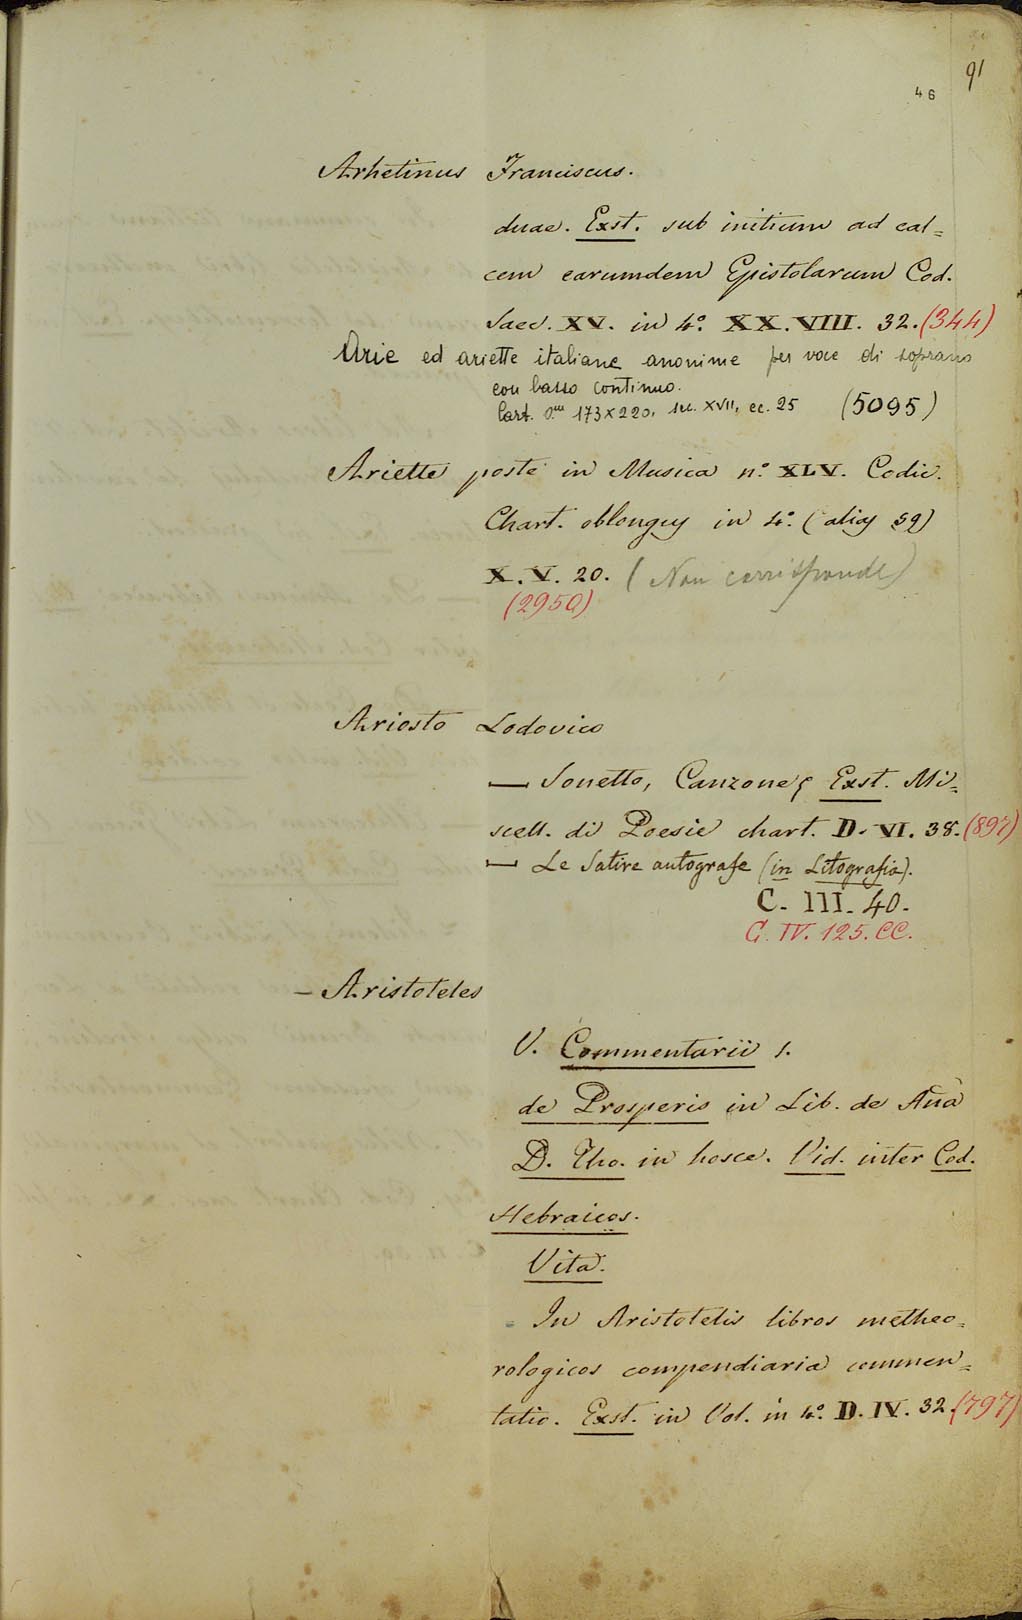 91
46
Arhetinus Franciscus.
duae. Exst. sub initium ad cal=
cem earumdem Epistolarum Cod.
Saec. XV. in 4.º XX.VIII. 32. (344)
Arie ed ariette italiane anonime per voce di soprano
con basso continuo.
Cart. 0.m 173×220, sec. XVII, cc. 25 (5095)
Ariette poste in Musica n.º XLV. Codic.
Chart. oblongus in 4.º (alias 59)
X. V. 20. (Non corrisponde)
(2950)
Ariosto Lodovico
— Sonetto, Canzone, Exst. Mi=
scell. di Poesie chart. D. VI. 38. (897)
— Le Satire autografe (in Litografia).
C. III. 40.
G. IV. 125. CC.
— Aristoteles
V. Commentarii s.
de Prosperis in Lib. de Aña
D. Tho. in hosce. Vid. inter Cod.
Hebraicos.
Vita.
= In Aristotelis libros metheo=
rologicos compendiaria commen=
tatio. Exst. in Vol. in 4.º D. IV. 32. (797)